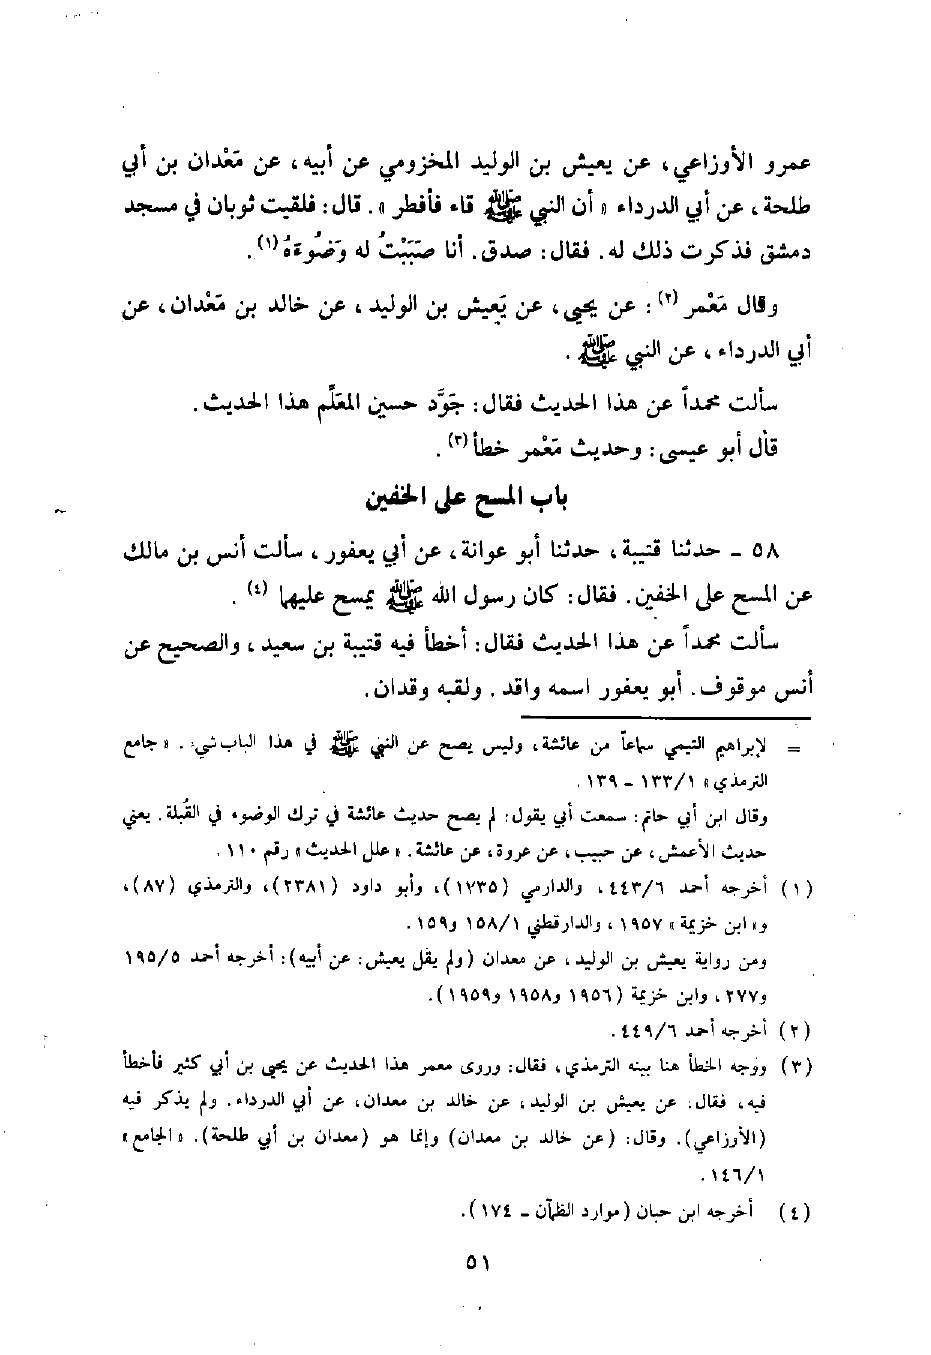 عمرو الأوزاعي، عن يعيش بن الوليد المخزومي عن أبيه، عن مَعْدان بن أبي
طلحة، عن أبي الدرداء « أن النبي ﷺ قاء فأفطر ». قال: فلقيت ثوبان في مسجد
دمشق فذكرت ذلك له. فقال: صدق. أنا صَبَبْتُ له وَضُوءَهُ (١).
وقال مَعْمر (٢): عن يحيى، عن يَعيش بن الوليد، عن خالد بن مَعْدان، عن
أبي الدرداء، عن النبي ﷺ.
سألت محمداً عن هذا الحديث فقال: جَوَّد حسين المعَلِّم هذا الحديث.
قال أبو عيسى: وحديث مَعْمر خطأ (٣).
باب المسح على الخفين
٥٨ - حدثنا قتيبة، حدثنا أبو عوانة، عن أبي يعفور، سألت أنس بن مالك
عن المسح على الخفين. فقال: كان رسول الله ﷺ يمسح عليهما (٤).
سألت محمداً عن هذا الحديث فقال: أخطأ فيه قتيبة بن سعيد، والصحيح عن
أنس موقوف. أبو يعفور اسمه واقد. ولقبه وقدان.
= لإبراهيم التيمي سماعاً من عائشة، وليس يصح عن النبي ﷺ في هذا الباب شيء. « جامع
الترمذي » ١٣٣/١ - ١٣٩.
وقال ابن أبي حاتم: سمعت أبي يقول: لم يصح حديث عائشة في ترك الوضوء في القُبلة. يعني
حديث الأعمش، عن حبيب، عن عروة، عن عائشة. « علل الحديث » رقم ١١٠.
(١) أخرجه أحمد ٤٤٣/٦، والدارمي (١٧٣٥)، وأبو داود (٢٣٨١)، والترمذي (٨٧)،
و« ابن خزيمة » ١٩٥٧، والدارقطني ١٥٨/١ و١٥٩.
ومن رواية يعيش بن الوليد، عن معدان (ولم يقل يعيش: عن أبيه): أخرجه أحمد ١٩٥/٥
و٢٧٧، وابن خزيمة (١٩٥٦ و١٩٥٨ و١٩٥٩).
(٢) أخرجه أحمد ٤٤٩/٦.
(٣) ووجه الخطأ هنا بينه الترمذي، فقال: وروى معمر هذا الحديث عن يحيى بن أبي كثير فأخطأ
فيه، فقال: عن يعيش بن الوليد، عن خالد بن معدان، عن أبي الدرداء. ولم يذكر فيه
(الأوزاعي). وقال: (عن خالد بن معدان) وإنما هو (معدان بن أبي طلحة). « الجامع »
١٤٦/١.
(٤) أخرجه ابن حبان (موارد الظمآن - ١٧٤).
٥١